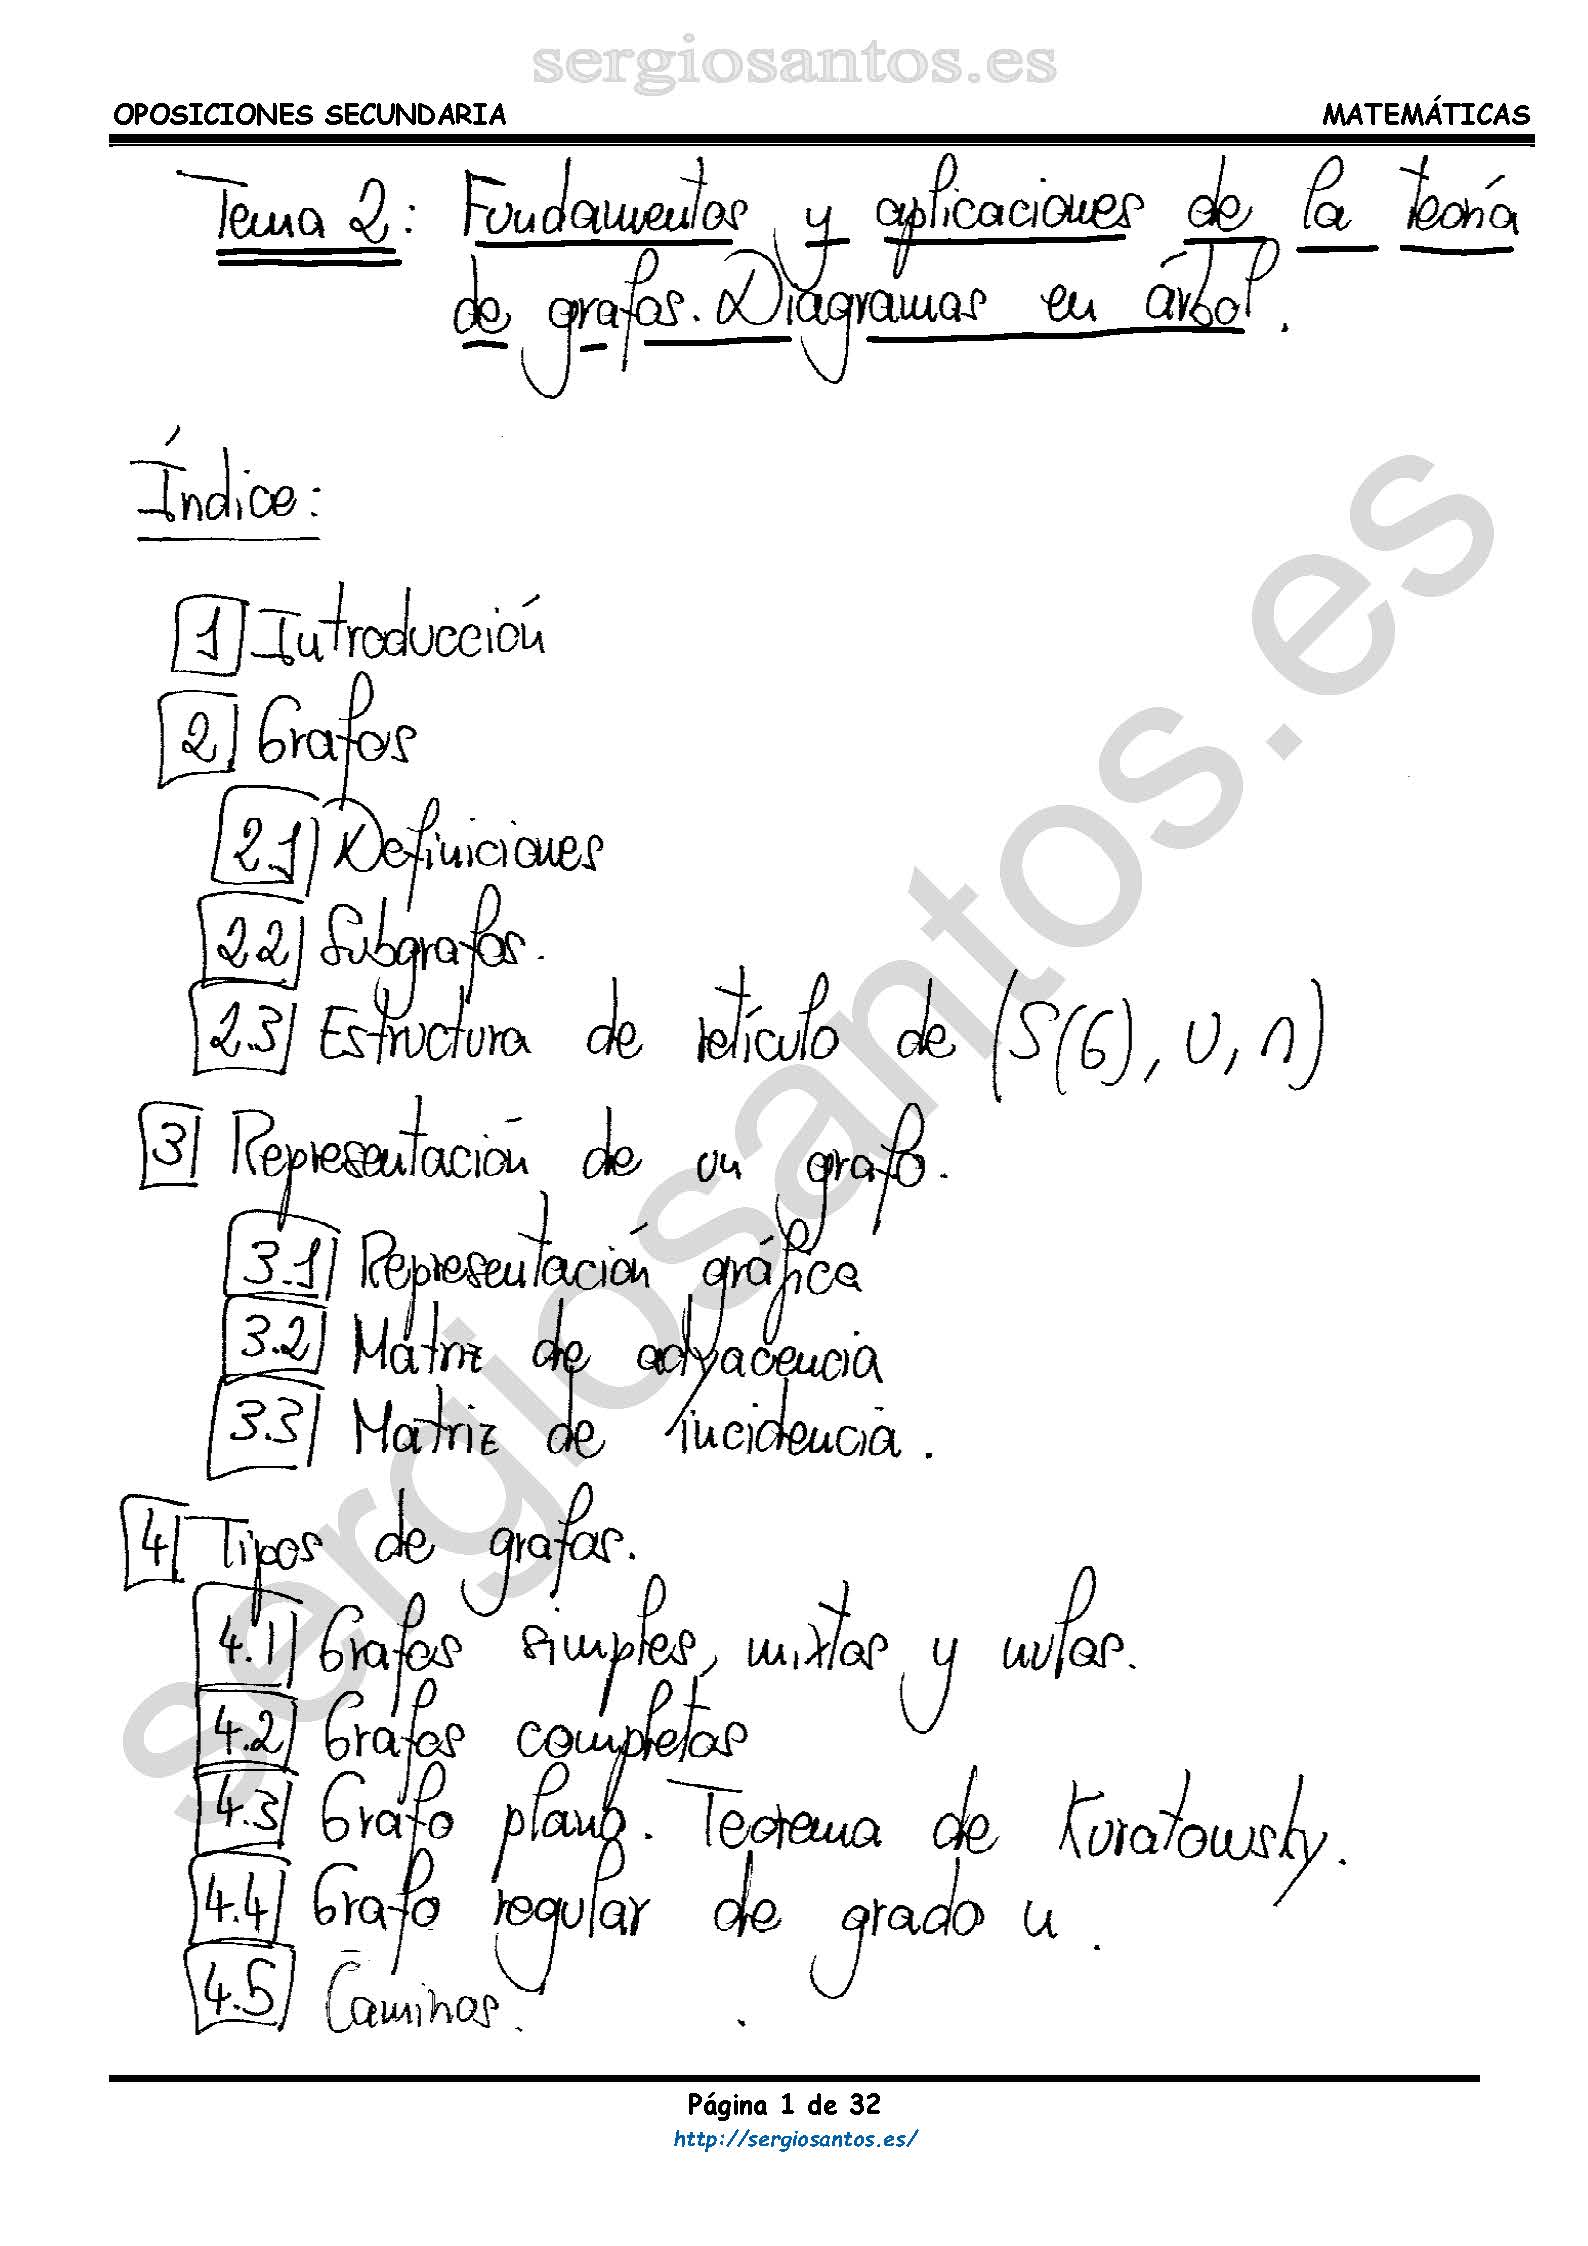 sergiosantos.es
OPOSICIONES SECUNDARIA MATEMÁTICAS
Tema 2: Fundamentos y aplicaciones de la teoría
de grafos. Diagramas en árbol.
Índice:
1 Introducción
2 Grafos
2.1 Definiciones
2.2 Subgrafos.
2.3 Estructura de retículo de (S(G), ∪, ∩)
3 Representación de un grafo.
3.1 Representación gráfica
3.2 Matriz de adyacencia
3.3 Matriz de incidencia.
4 Tipos de grafos.
4.1 Grafos simples, mixtos y nulos.
4.2 Grafos completos
4.3 Grafo plano. Teorema de Kuratowsky.
4.4 Grafo regular de grado n.
4.5 Caminos.
sergiosantos.es
Página 1 de 32
http://sergiosantos.es/